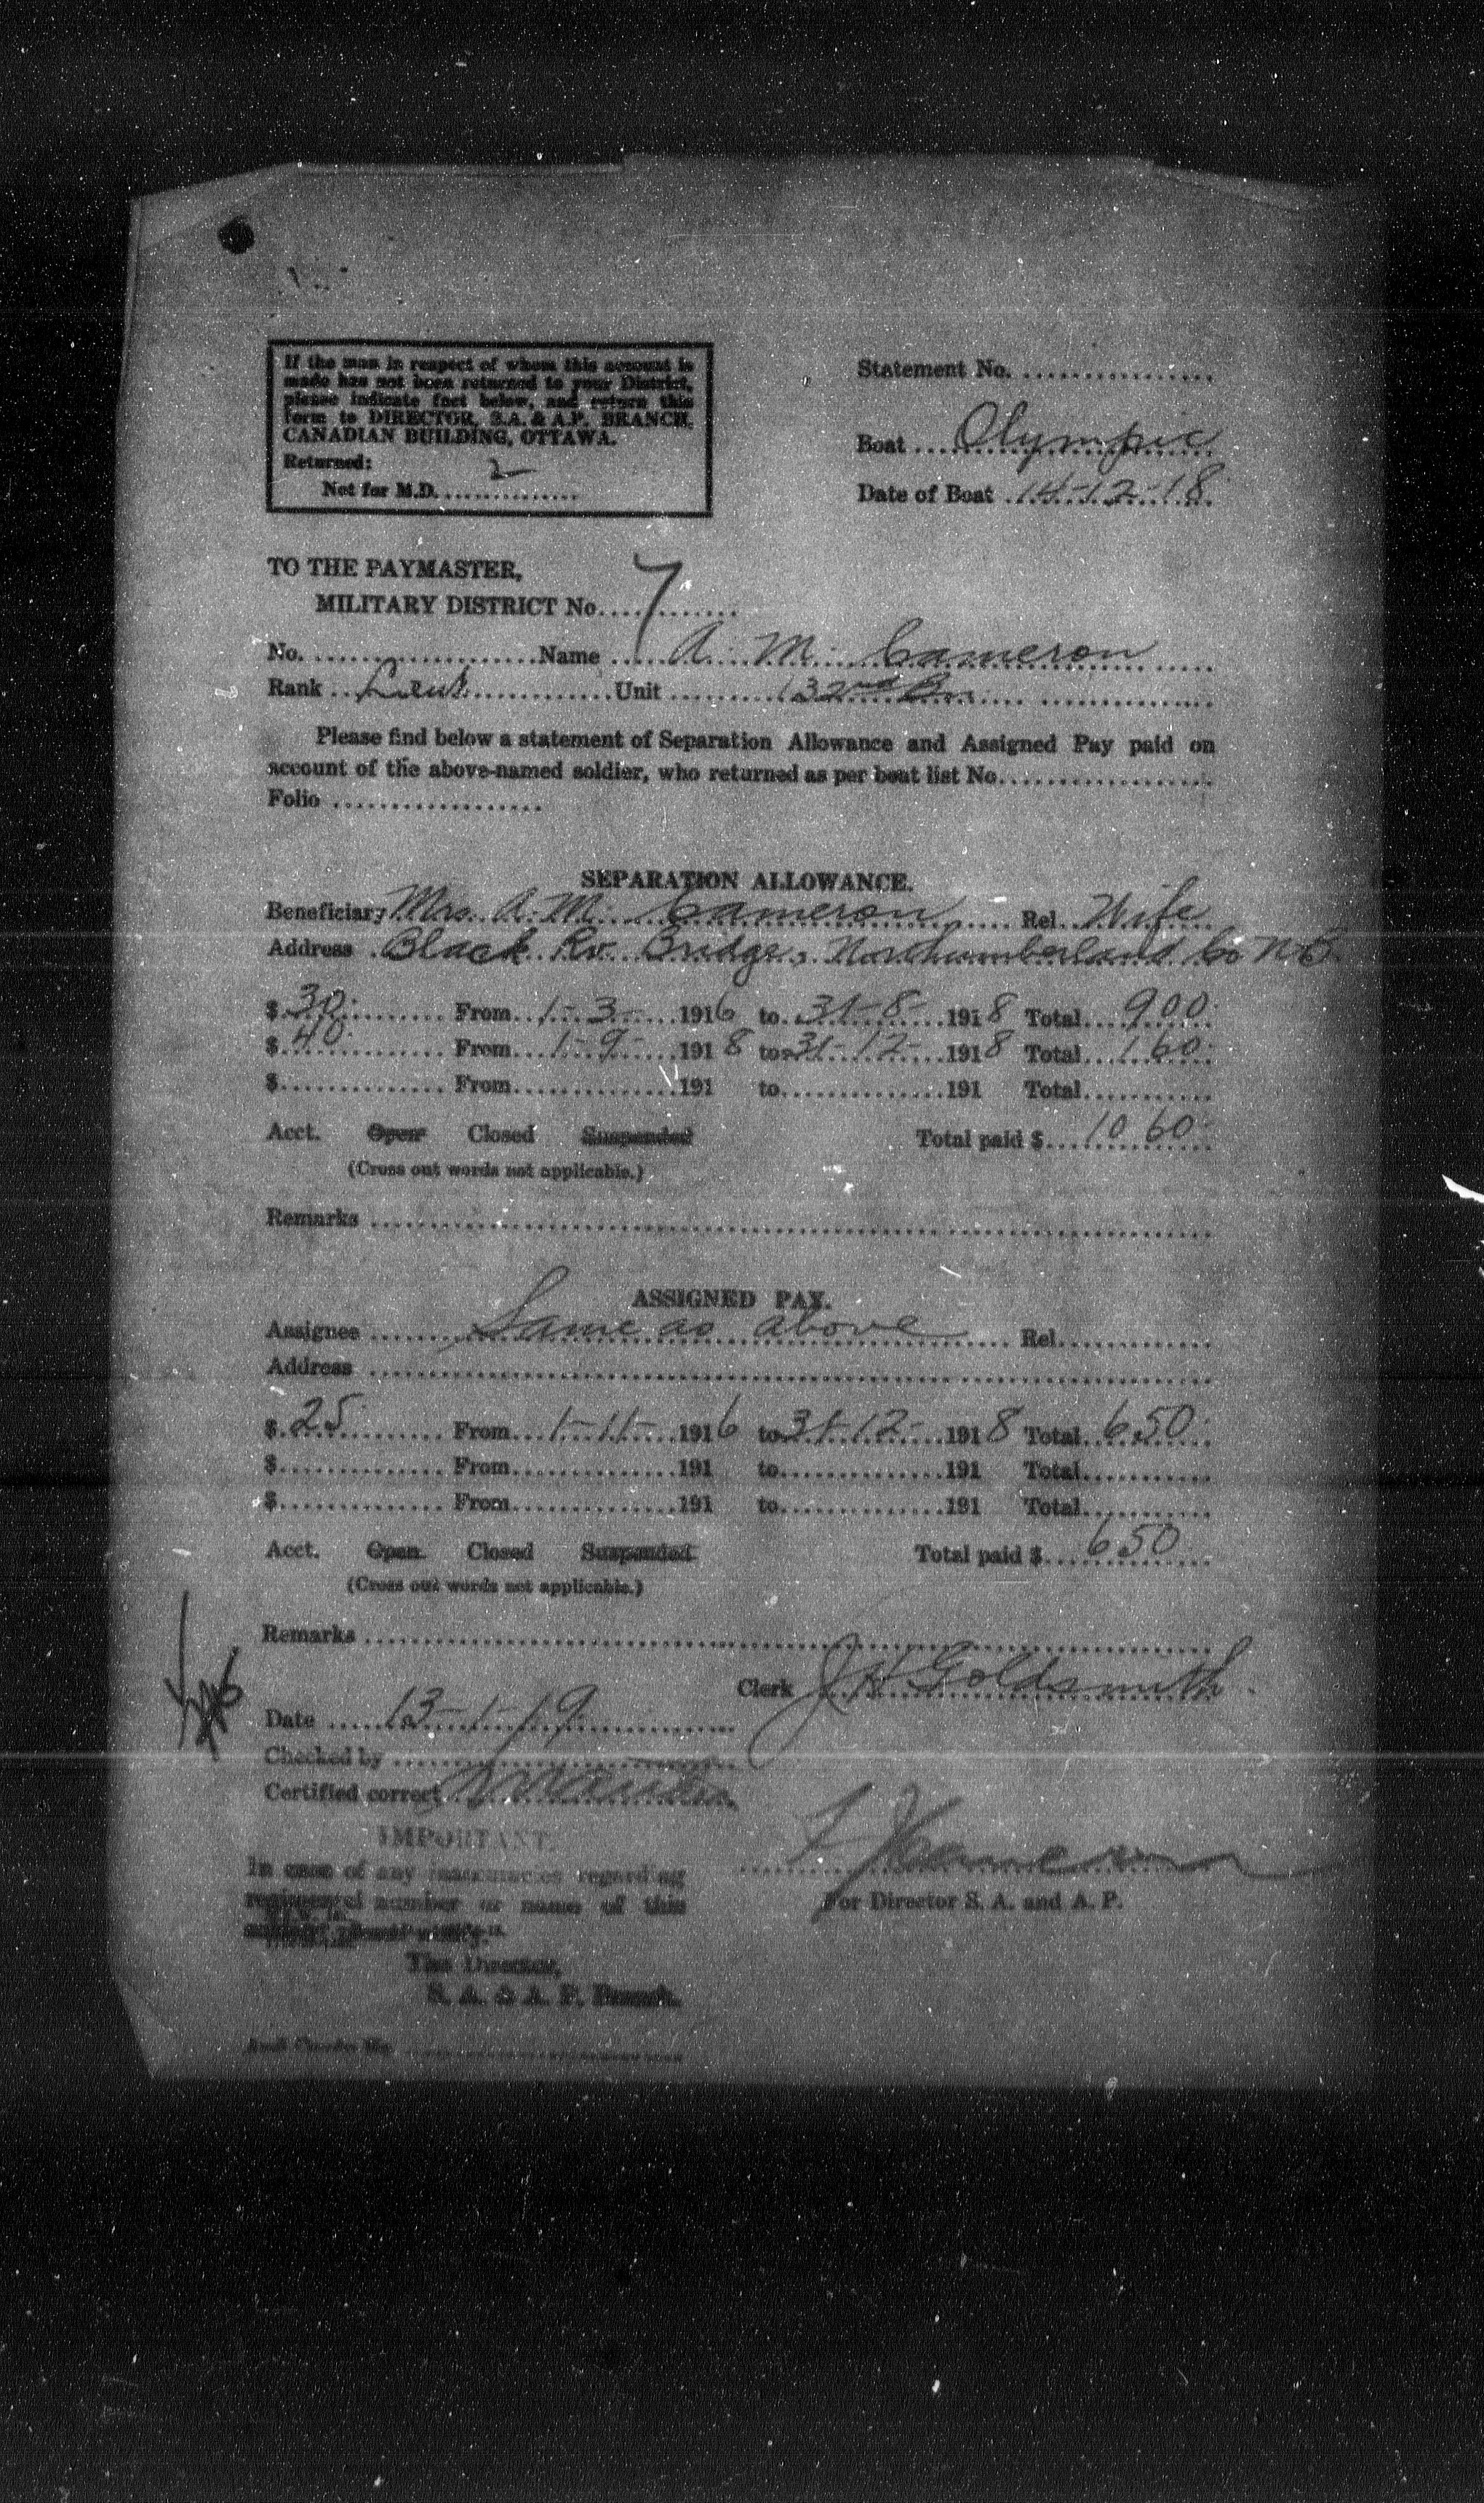 If the man in respect of whom this account is
made has not been returned to your District,
please indicate fact below, and return this
form to DIRECTOR, S.A. & A.P. BRANCH,
CANADIAN BUILDING, OTTAWA.
Returned:
Not for M.D. 2
Statement No.
Boat Olympic
Date of Boat 14-12-18
TO THE PAYMASTER,
MILITARY DISTRICT No. 7
No. Name A. M. Cameron
Rank Lieut Unit 132nd Bn
Please find below a statement of Separation Allowance and Assigned Pay paid on
account of the above-named soldier, who returned as per boat list No.
Folio
SEPARATION ALLOWANCE.
Beneficiary Mrs. A. M. Cameron Rel. Wife
Address Black Rv. Bridge, Northumberland Co N.B.
$ 30. From 1-3- 1916 to 31-8- 1918 Total 900.
$ 40. From 1-9- 1918 to 31-12- 1918 Total 160.
$ From 191 to 191 Total
Acct. Open Closed Suspended Total paid $ 1060.
(Cross out words not applicable.)
Remarks
ASSIGNED PAY.
Assignee Same as above Rel.
Address
$ 25. From 1-11- 1916 to 31-12- 1918 Total 650.
$ From 191 to 191 Total
$ From 191 to 191 Total
Acct. Open Closed Suspended Total paid $ 650
(Cross out words not applicable.)
Remarks
Clerk J H Goldsmith
Date 13-1-19
Checked by
Certified correct
For Director S. A. and A. P.
IMPORTANT.
In case of any inaccuracies regarding
regimental number or name of this
The Director,
S. A. & A. P. Branch.